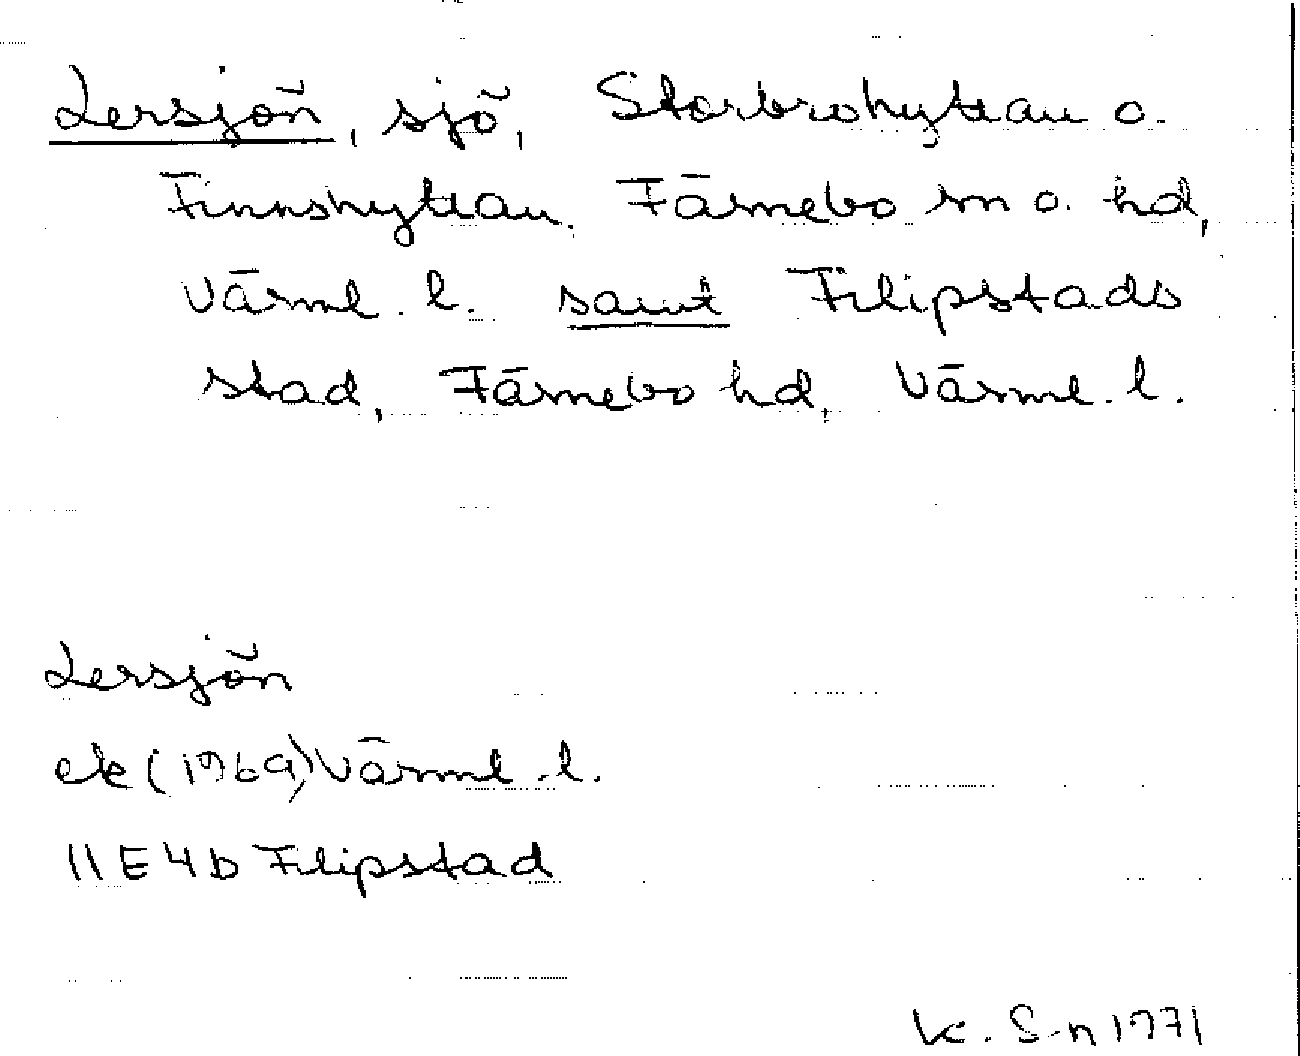 Lersjön, sjö, Storbrohyttan o.
Finnshyttan, Färnebo sn o. hd,
Värml. l. samt Filipstads
stad, Färnebo hd, Värml. l.
Lersjön
ek (1969) Värml. l.
11E4b Filipstad
K. S-n 1971